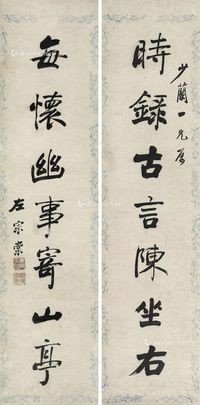 少蘭一兄屬
時錄古言陳坐右
每懷幽事寄山亭
左宗棠